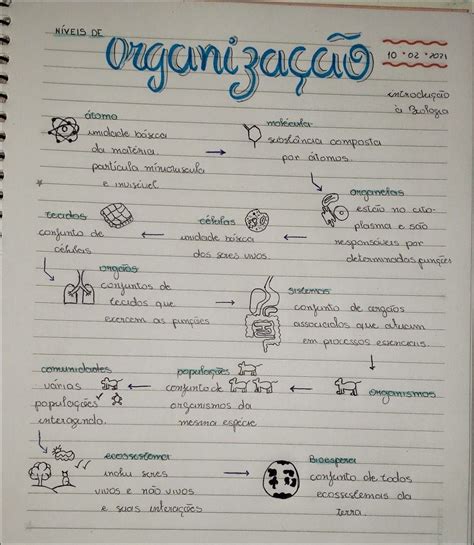 NÍVEIS DE
Organização
10 • 02 • 2021
introdução
à Biologia
átomo
unidade básica
da matéria.
partícula minouscula
e invisível
molécula
substância composta
por átomos.
organelas
estão no cito-
plasma e são
responsáveis por
determinadas funções
células
unidade básica
dos seres vivos.
tecidos
conjunto de
células
orgãos
conjuntos de
tecidos que
exercem as funções
sistemas
conjunto de orgãos
associados que atuam
em processos essenciais.
organismos
populações
conjunto de
organismos da
mesma espécie
comunidades
várias
populações
interagindo.
ecossistema
inclui seres
vivos e não vivos
e suas interações
Biosfera
conjunto de todos
ecossistemas da
terra.